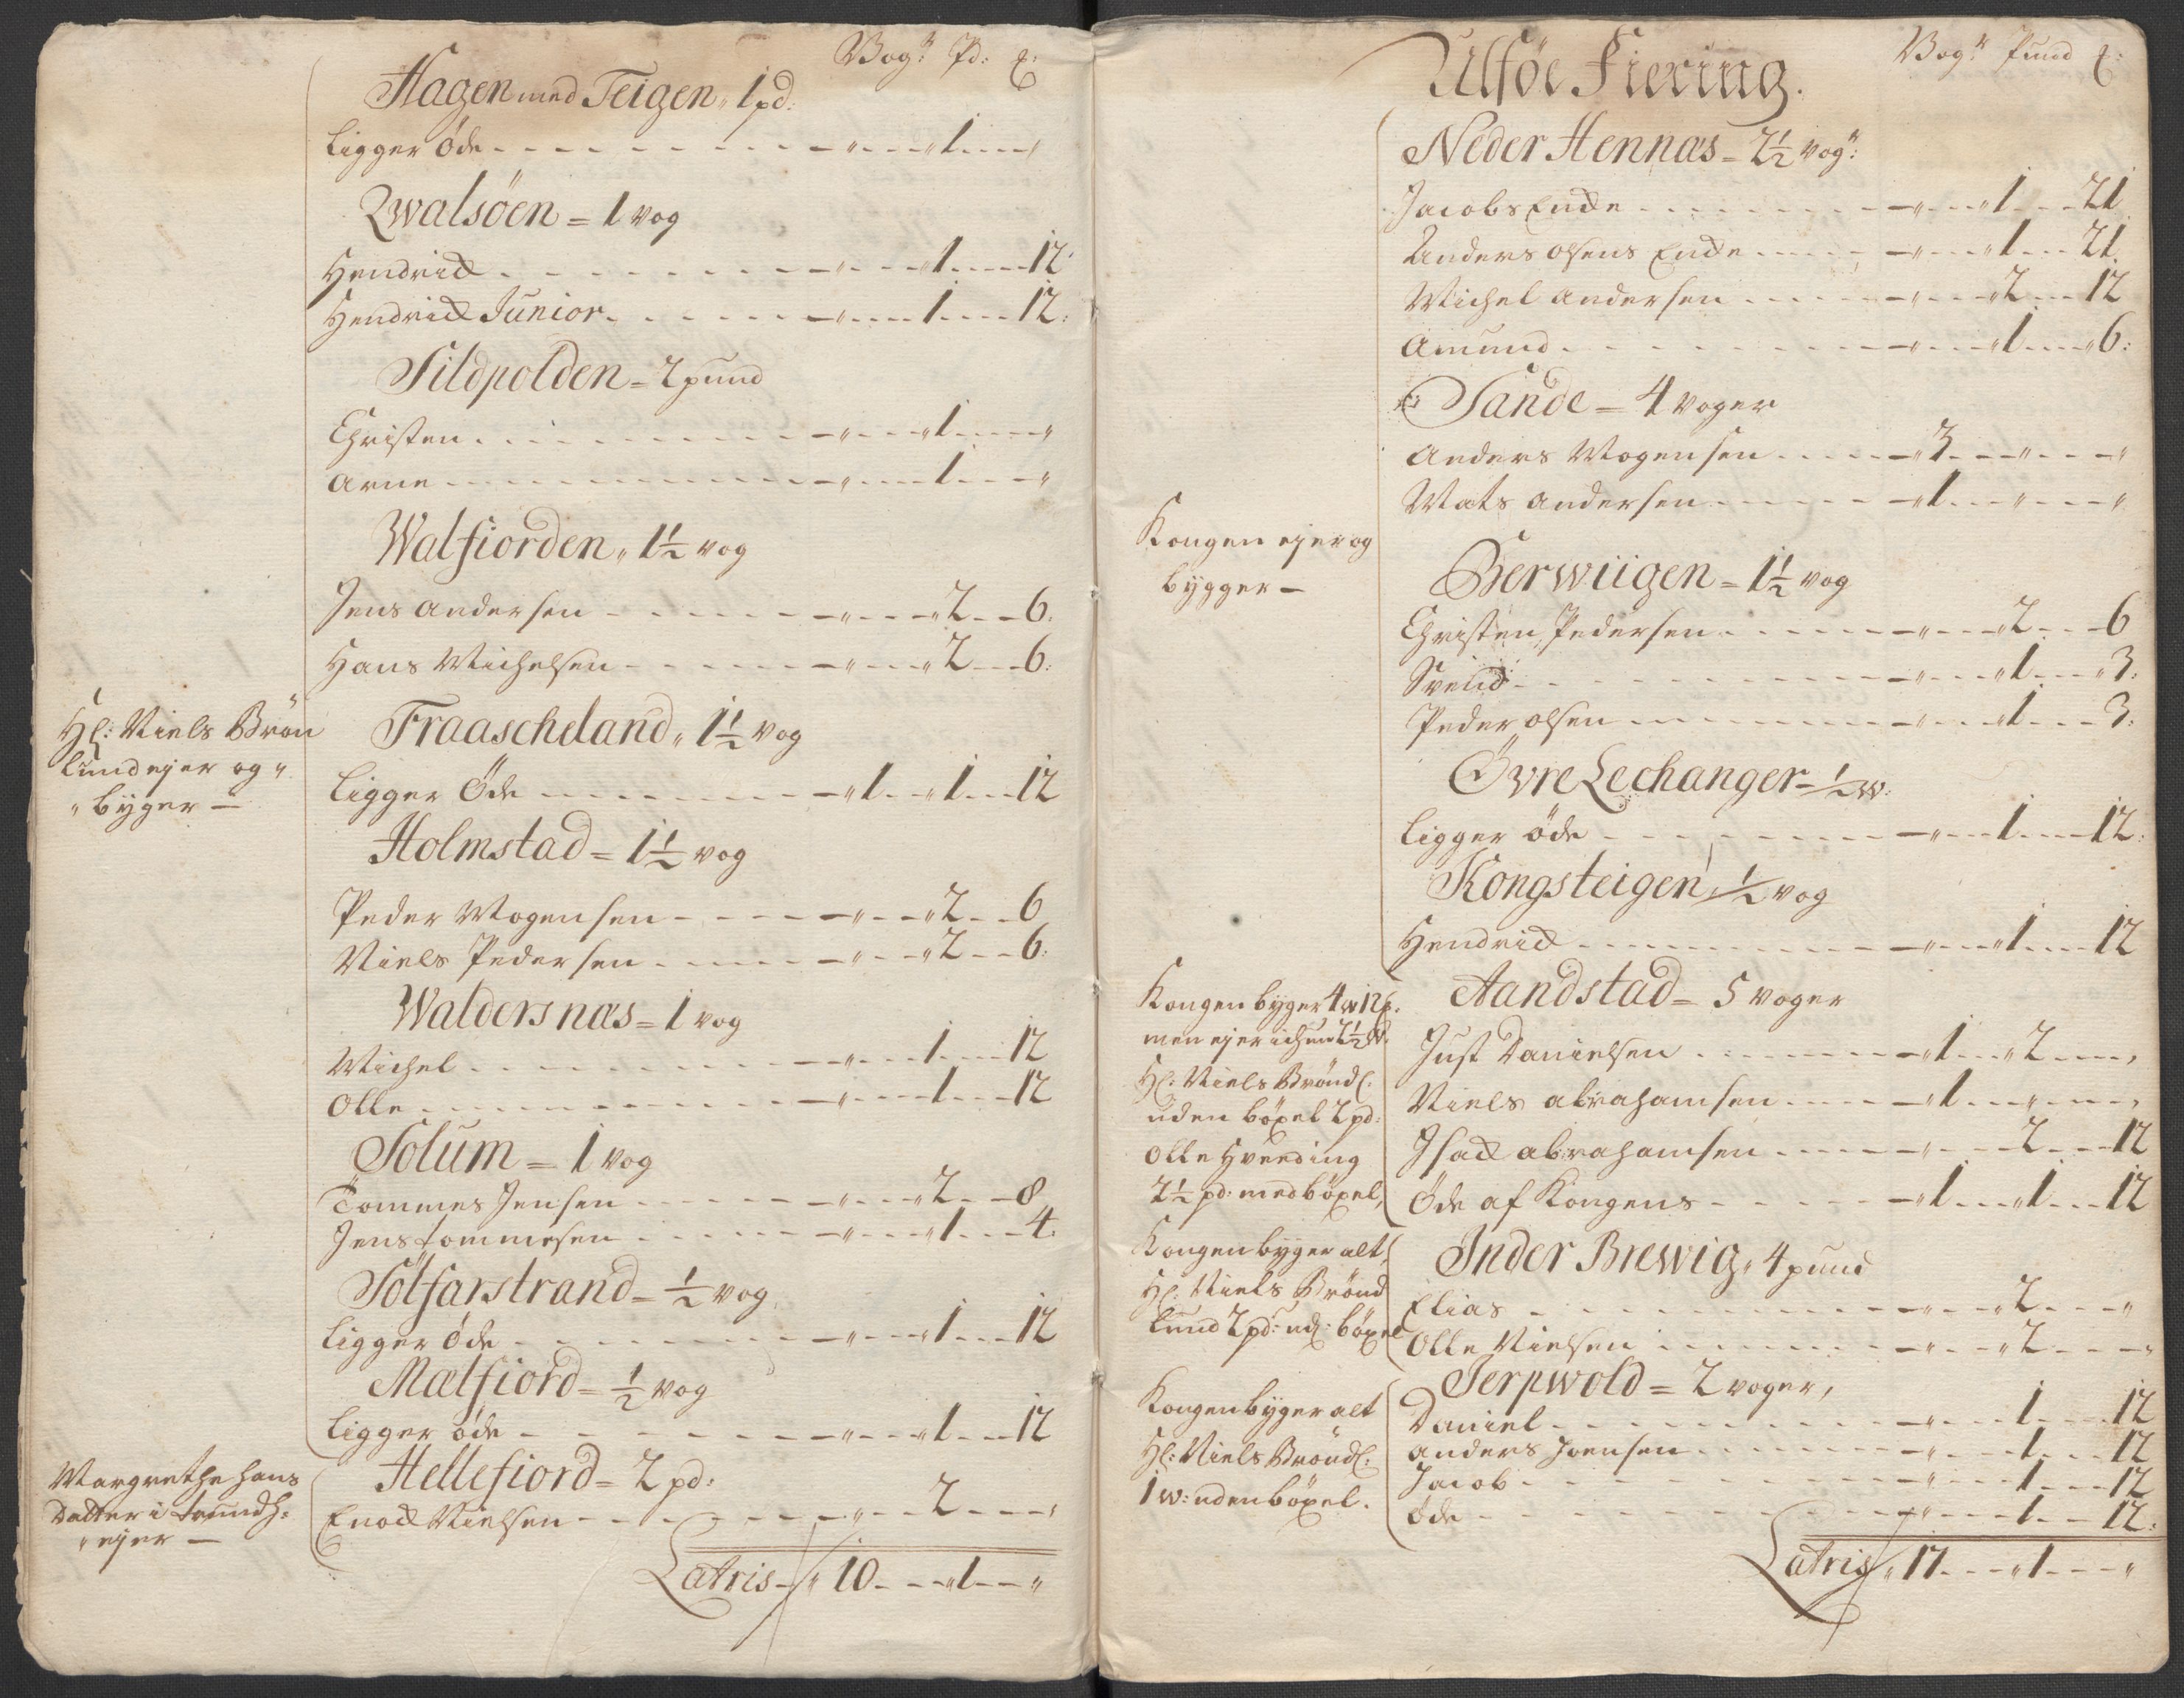 Vog:r Pd: ℔:
Hagen med Teigen „ 1 pd:
Ligger öde - - - „ - - „ 1 - - „
Qwalsöen = 1 vog
Hendrich - - - „ - - „ 1 - - 12
Hendrich Junior - - - „ - - 1 - - 12:
Sildpolden = 2 pund
Christen - - - „ - - „ 1 - - „
Arne - - - „ - - 1 - - „
Walfiorden „ 1½ vog
Jens Andersen - - - „ - - „ 2 - - 6:
Hans Michelsen - - - „ - - „ 2 - - 6:
Hl: Niels Brön
lund ejer og „
„ byger —
Fraascheland „ 1½ vog
Ligger Öde - - - „ 1 - - „ 1 - - 12
Holmstad = 1½ vog
Peder Mogensen - - - „ - - „ 2 - - 6
Niels Pedersen - - - „ - - „ 2 - - 6:
Waldersnæs = 1 vog
Michel - - - „ - - 1 - - 12
Olle - - - „ - - 1 - - 12
Solum = 1 vog
Tommes Jensen - - - „ - - „ 2 - - 8
Jens Tommesen - - - „ - - „ 1 - - 4:
Solfarstrand = ½ vog
Ligger öde - - - „ - - „ 1 - - 12
Mælfiord = ½ vog
Ligger öde - - - „ - - „ 1 - - 12
Margrethe Hans
Datter i Trundh:
„ ejer —
Hellefiord = 2 pd:
Enoch Nielsen - - - „ - - 2 - - „
Latris - „ 10 - - „ 1 - - „
Vog:r Pund ℔:
Ulföe Fiering.
Neder Hennæs = 2½ vog:r
Jacobs Enche - - - „ - - „ 1 - - 21
Anders Olsens Enche - - - „ - - „ 1 - - 21
Michel Andersen - - - „ - - „ 2 - - 12
Amund - - - „ - - „ 1 - - „ 6:
Sande = 4 voger
Anders Mogensen - - - „ 3 - - „ - - „
Mats Andersen - - - „ 1 - - „ - - „
Kongen ejer og
bygger —
Berwiigen = 1½ vog
Christen Pedersen - - - „ - - „ 2 - - 6
Svend - - - „ - - „ 1 - - „ 3:
Peder Olsen - - - „ - - „ 1 - - 3:
Övre Lechanger = ½ w:
Ligger öde - - - „ - - 1 - - 12:
Kongsteigen ½ vog
Hendrich - - - „ - - „ 1 - - 12
Kongen byger 4 w 12 ℔:
men ejer ichun 2½ w:
Hl: Niels Bröndl:
uden böxel 2 pd:
Olle Hveding
2½ pd: med böxel,
Aandstad = 5 voger
Just Danielsen - - - „ 1 - - „ 2 - - „
Niels Abrahamsen - - - „ 1 - - „ - - „
Isach Abrahamsen - - - „ - - 2 - - 12
Öde af Kongens - - - „ 1 - - „ 1 - - 12
Kongen byger alt,
Hl: Niels Brönd
lund 2 pd: ud: böxel
Inder Brewig „ 4 pund
Elias - - - „ - - „ 2 - - „
Olle Nielsen - - - „ - - „ 2 - - „
Kongen byger alt
Hl: Niels Bröndl:
1 w: uden böxel.
Jerpwold = 2 voger,
Daniel - - - „ - - 1 - - 12
Anders Joensen - - - „ - - 1 - - 12
Jacob - - - „ - - 1 - - 12
Öde - - - „ - - 1 - - 12:
Latris „ 17 - - „ 1 - - „